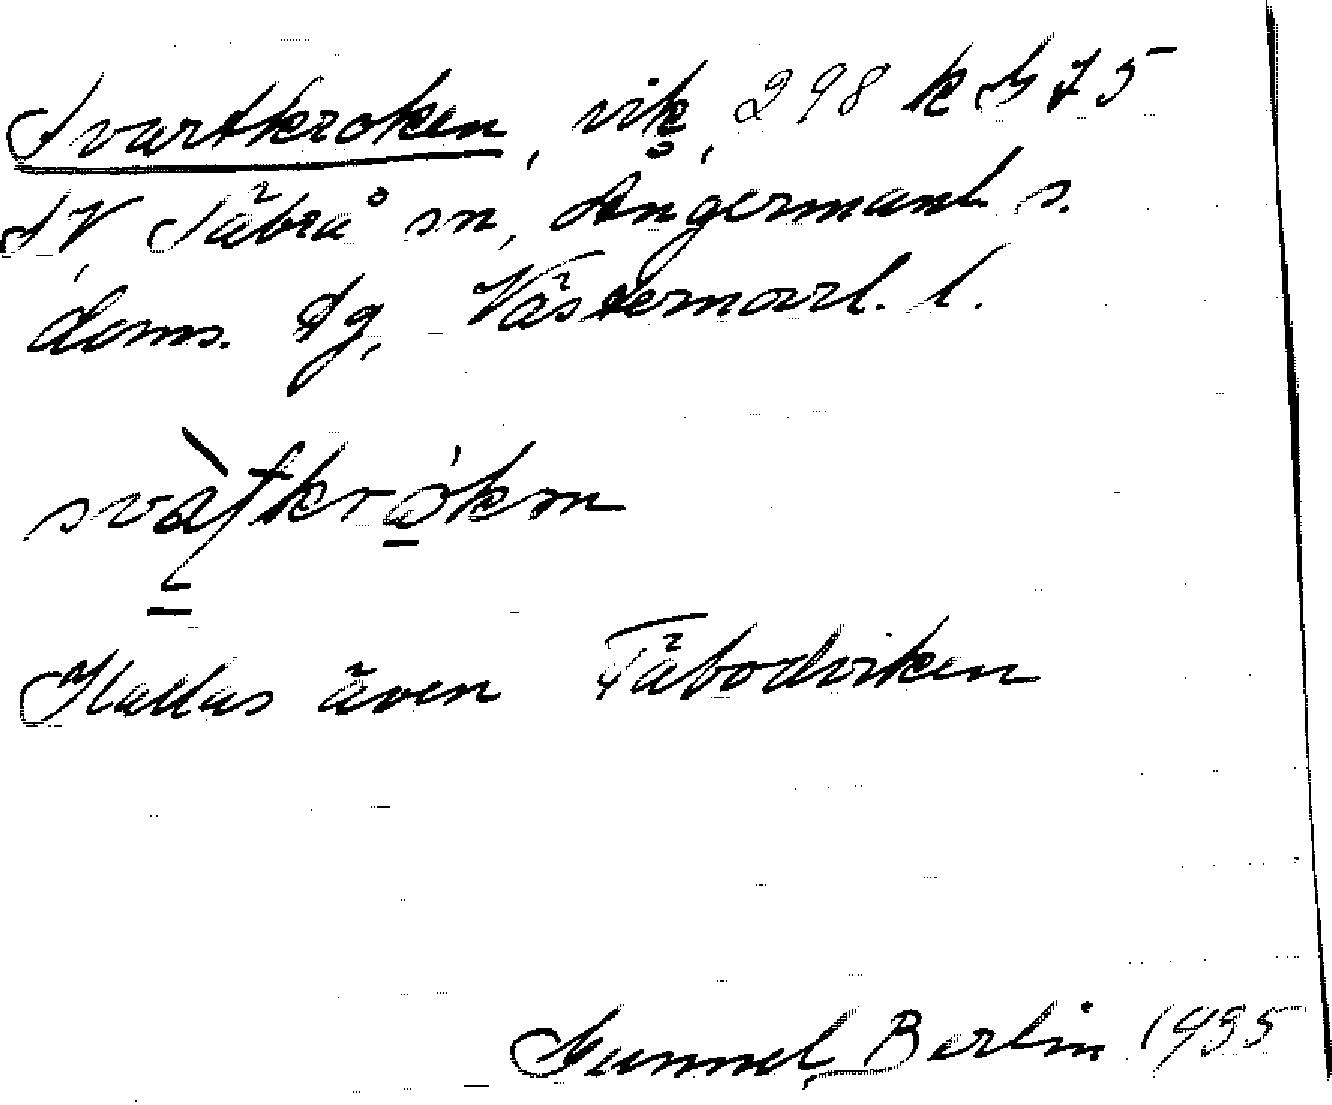 Svartkroken, vik, 298 k G 75
SV, Säbrå sn, Ångermanl s.
doms. Åg, Västernorrl. l.
svàʈkrókṇ
Kallas även Fäbodviken
Gunnel Berlin 1935